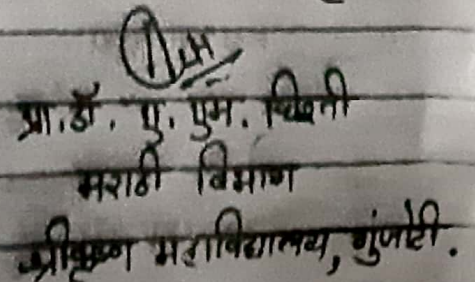 प्रा. डॉ. ए. एम. चिश्ती
मराठी विभाग
श्रीकृष्ण महाविद्यालय, गुंजोटी.